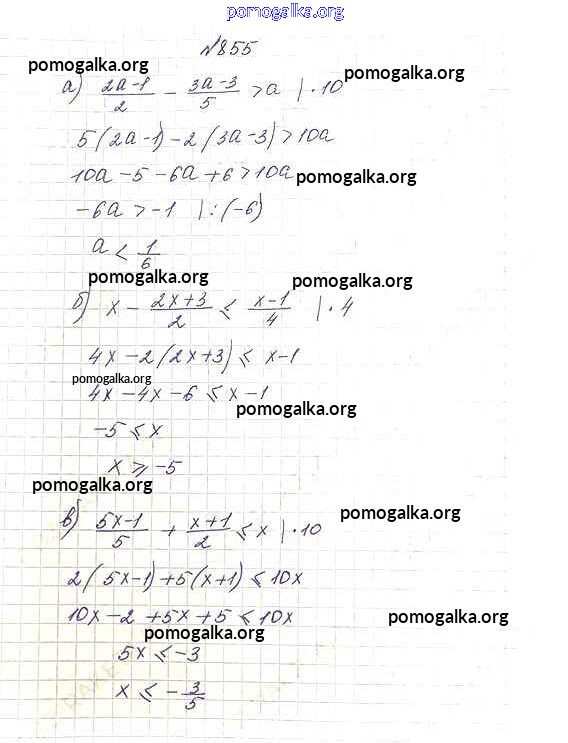 pomogalka.org
№855
pomogalka.org
а) (2a-1)/2 - (3a-3)/5 > a |·10 pomogalka.org
5(2a-1)-2(3a-3)>10a
10a-5-6a+6>10a pomogalka.org
-6a > -1 |:(-6)
a < 1/6
pomogalka.org pomogalka.org
б) x - (2x+3)/2 ⩽ (x-1)/4 |·4
4x-2(2x+3) ⩽ x-1
pomogalka.org
4x-4x-6 ⩽ x-1
pomogalka.org
-5 ⩽ x
x ⩾ -5
pomogalka.org
в) (5x-1)/5 + (x+1)/2 ⩽ x |·10 pomogalka.org
2(5x-1)+5(x+1) ⩽ 10x
10x-2+5x+5 ⩽ 10x pomogalka.org
pomogalka.org
5x ⩽ -3
x ⩽ -3/5